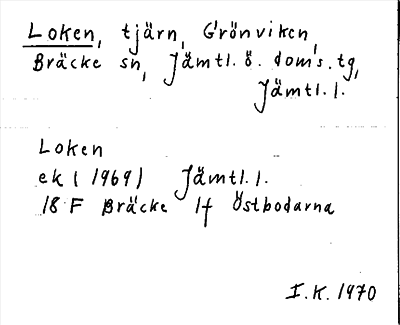 Loken, tjärn, Grönviken,
Bräcke sn, Jämtl. ö. doms. tg,
Jämtl. l.
Loken
ek (1969) Jämtl. l.
18 F Bräcke 1f Östbodarna
I.K. 1970